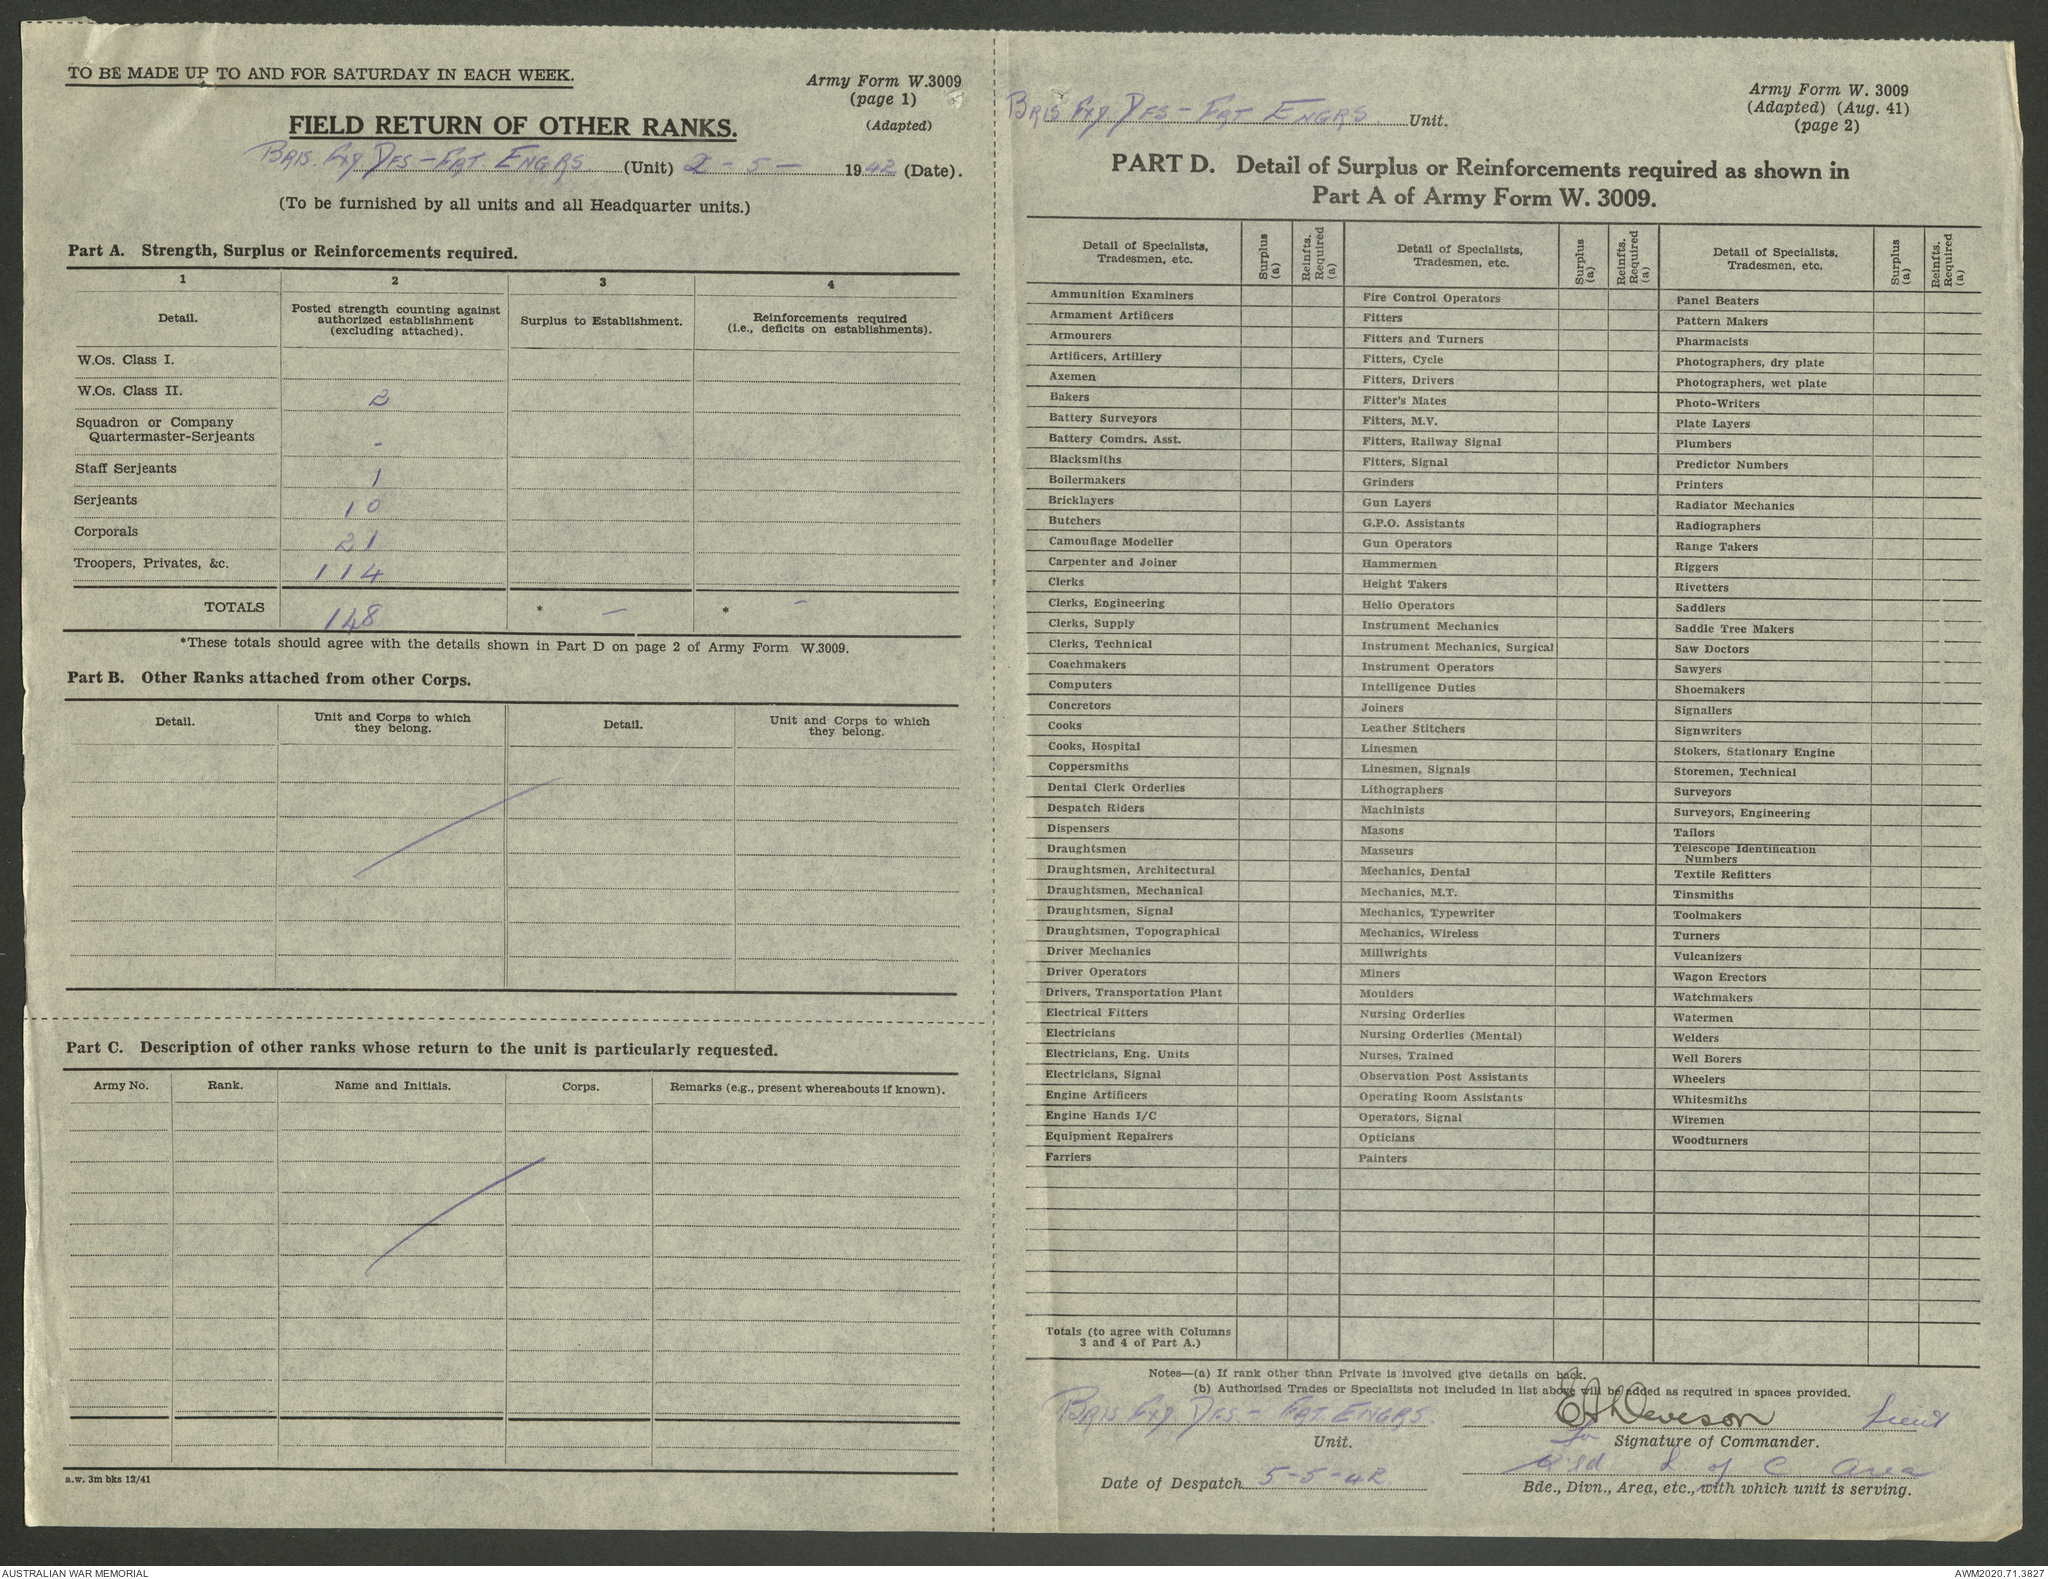 TO BE MADE UP TO AND FOR SATURDAY IN EACH WEEK.
Army Form W.3009
(page 1)
(Adapted)
FIELD RETURN OF OTHER RANKS.
BRIS. FXD. DFS - FRT. ENGRS (Unit) 2 - 5 - 1942 (Date).
(To be furnished by all units and all Headquarter units.)
Part A. Strength, Surplus or Reinforcements required.
1 2 3 4
Detail. Posted strength counting against authorized establishment (excluding attached). Surplus to Establishment. Reinforcements required (i.e., deficits on establishments).
W.Os. Class I.
W.Os. Class II. 2
Squadron or Company
Quartermaster-Serjeants -
Staff Serjeants 1
Serjeants 10
Corporals 21
Troopers, Privates, &c. 114
TOTALS 148 * — * —
*These totals should agree with the details shown in Part D on page 2 of Army Form W.3009.
Part B. Other Ranks attached from other Corps.
Detail. Unit and Corps to which they belong. Detail. Unit and Corps to which they belong.
Part C. Description of other ranks whose return to the unit is particularly requested.
Army No. Rank. Name and Initials. Corps. Remarks (e.g., present whereabouts if known).
a.w. 3m bks 12/41
Army Form W. 3009
(Adapted) (Aug. 41)
(page 2)
BRIS FXD. DFS - FRT ENGRS. Unit.
PART D. Detail of Surplus or Reinforcements required as shown in
Part A of Army Form W. 3009.
Detail of Specialists, Tradesmen, etc. Surplus (a) Reinfts. Required (a) Detail of Specialists, Tradesmen, etc. Surplus (a) Reinfts. Required (a) Detail of Specialists, Tradesmen, etc. Surplus (a) Reinfts. Required (a)
Ammunition Examiners Fire Control Operators Panel Beaters
Armament Artificers Fitters Pattern Makers
Armourers Fitters and Turners Pharmacists
Artificers, Artillery Fitters, Cycle Photographers, dry plate
Axemen Fitters, Drivers Photographers, wet plate
Bakers Fitter's Mates Photo-Writers
Battery Surveyors Fitters, M.V. Plate Layers
Battery Comdrs. Asst. Fitters, Railway Signal Plumbers
Blacksmiths Fitters, Signal Predictor Numbers
Boilermakers Grinders Printers
Bricklayers Gun Layers Radiator Mechanics
Butchers G.P.O. Assistants Radiographers
Camouflage Modeller Gun Operators Range Takers
Carpenter and Joiner Hammermen Riggers
Clerks Height Takers Rivetters
Clerks, Engineering Helio Operators Saddlers
Clerks, Supply Instrument Mechanics Saddle Tree Makers
Clerks, Technical Instrument Mechanics, Surgical Saw Doctors
Coachmakers Instrument Operators Sawyers
Computers Intelligence Duties Shoemakers
Concretors Joiners Signallers
Cooks Leather Stitchers Signwriters
Cooks, Hospital Linesmen Stokers, Stationary Engine
Coppersmiths Linesmen, Signals Storemen, Technical
Dental Clerk Orderlies Lithographers Surveyors
Despatch Riders Machinists Surveyors, Engineering
Dispensers Masons Tailors
Draughtsmen Masseurs Telescope Identification Numbers
Draughtsmen, Architectural Mechanics, Dental Textile Refitters
Draughtsmen, Mechanical Mechanics, M.T. Tinsmiths
Draughtsmen, Signal Mechanics, Typewriter Toolmakers
Draughtsmen, Topographical Mechanics, Wireless Turners
Driver Mechanics Millwrights Vulcanizers
Driver Operators Miners Wagon Erectors
Drivers, Transportation Plant Moulders Watchmakers
Electrical Fitters Nursing Orderlies Watermen
Electricians Nursing Orderlies (Mental) Welders
Electricians, Eng. Units Nurses, Trained Well Borers
Electricians, Signal Observation Post Assistants Wheelers
Engine Artificers Operating Room Assistants Whitesmiths
Engine Hands I/C Operators, Signal Wiremen
Equipment Repairers Opticians Woodturners
Farriers Painters
Totals (to agree with Columns
3 and 4 of Part A.)
Notes—(a) If rank other than Private is involved give details on back.
(b) Authorised Trades or Specialists not included in list above will be added as required in spaces provided.
BRIS FXD. DFS - FRT ENGRS. EADeveson Lieut
Unit. for Signature of Commander.
Date of Despatch 5-5-42 Q'ld L of C Area
Bde., Divn., Area, etc., with which unit is serving.
AUSTRALIAN WAR MEMORIAL
AWM2020.71.3827